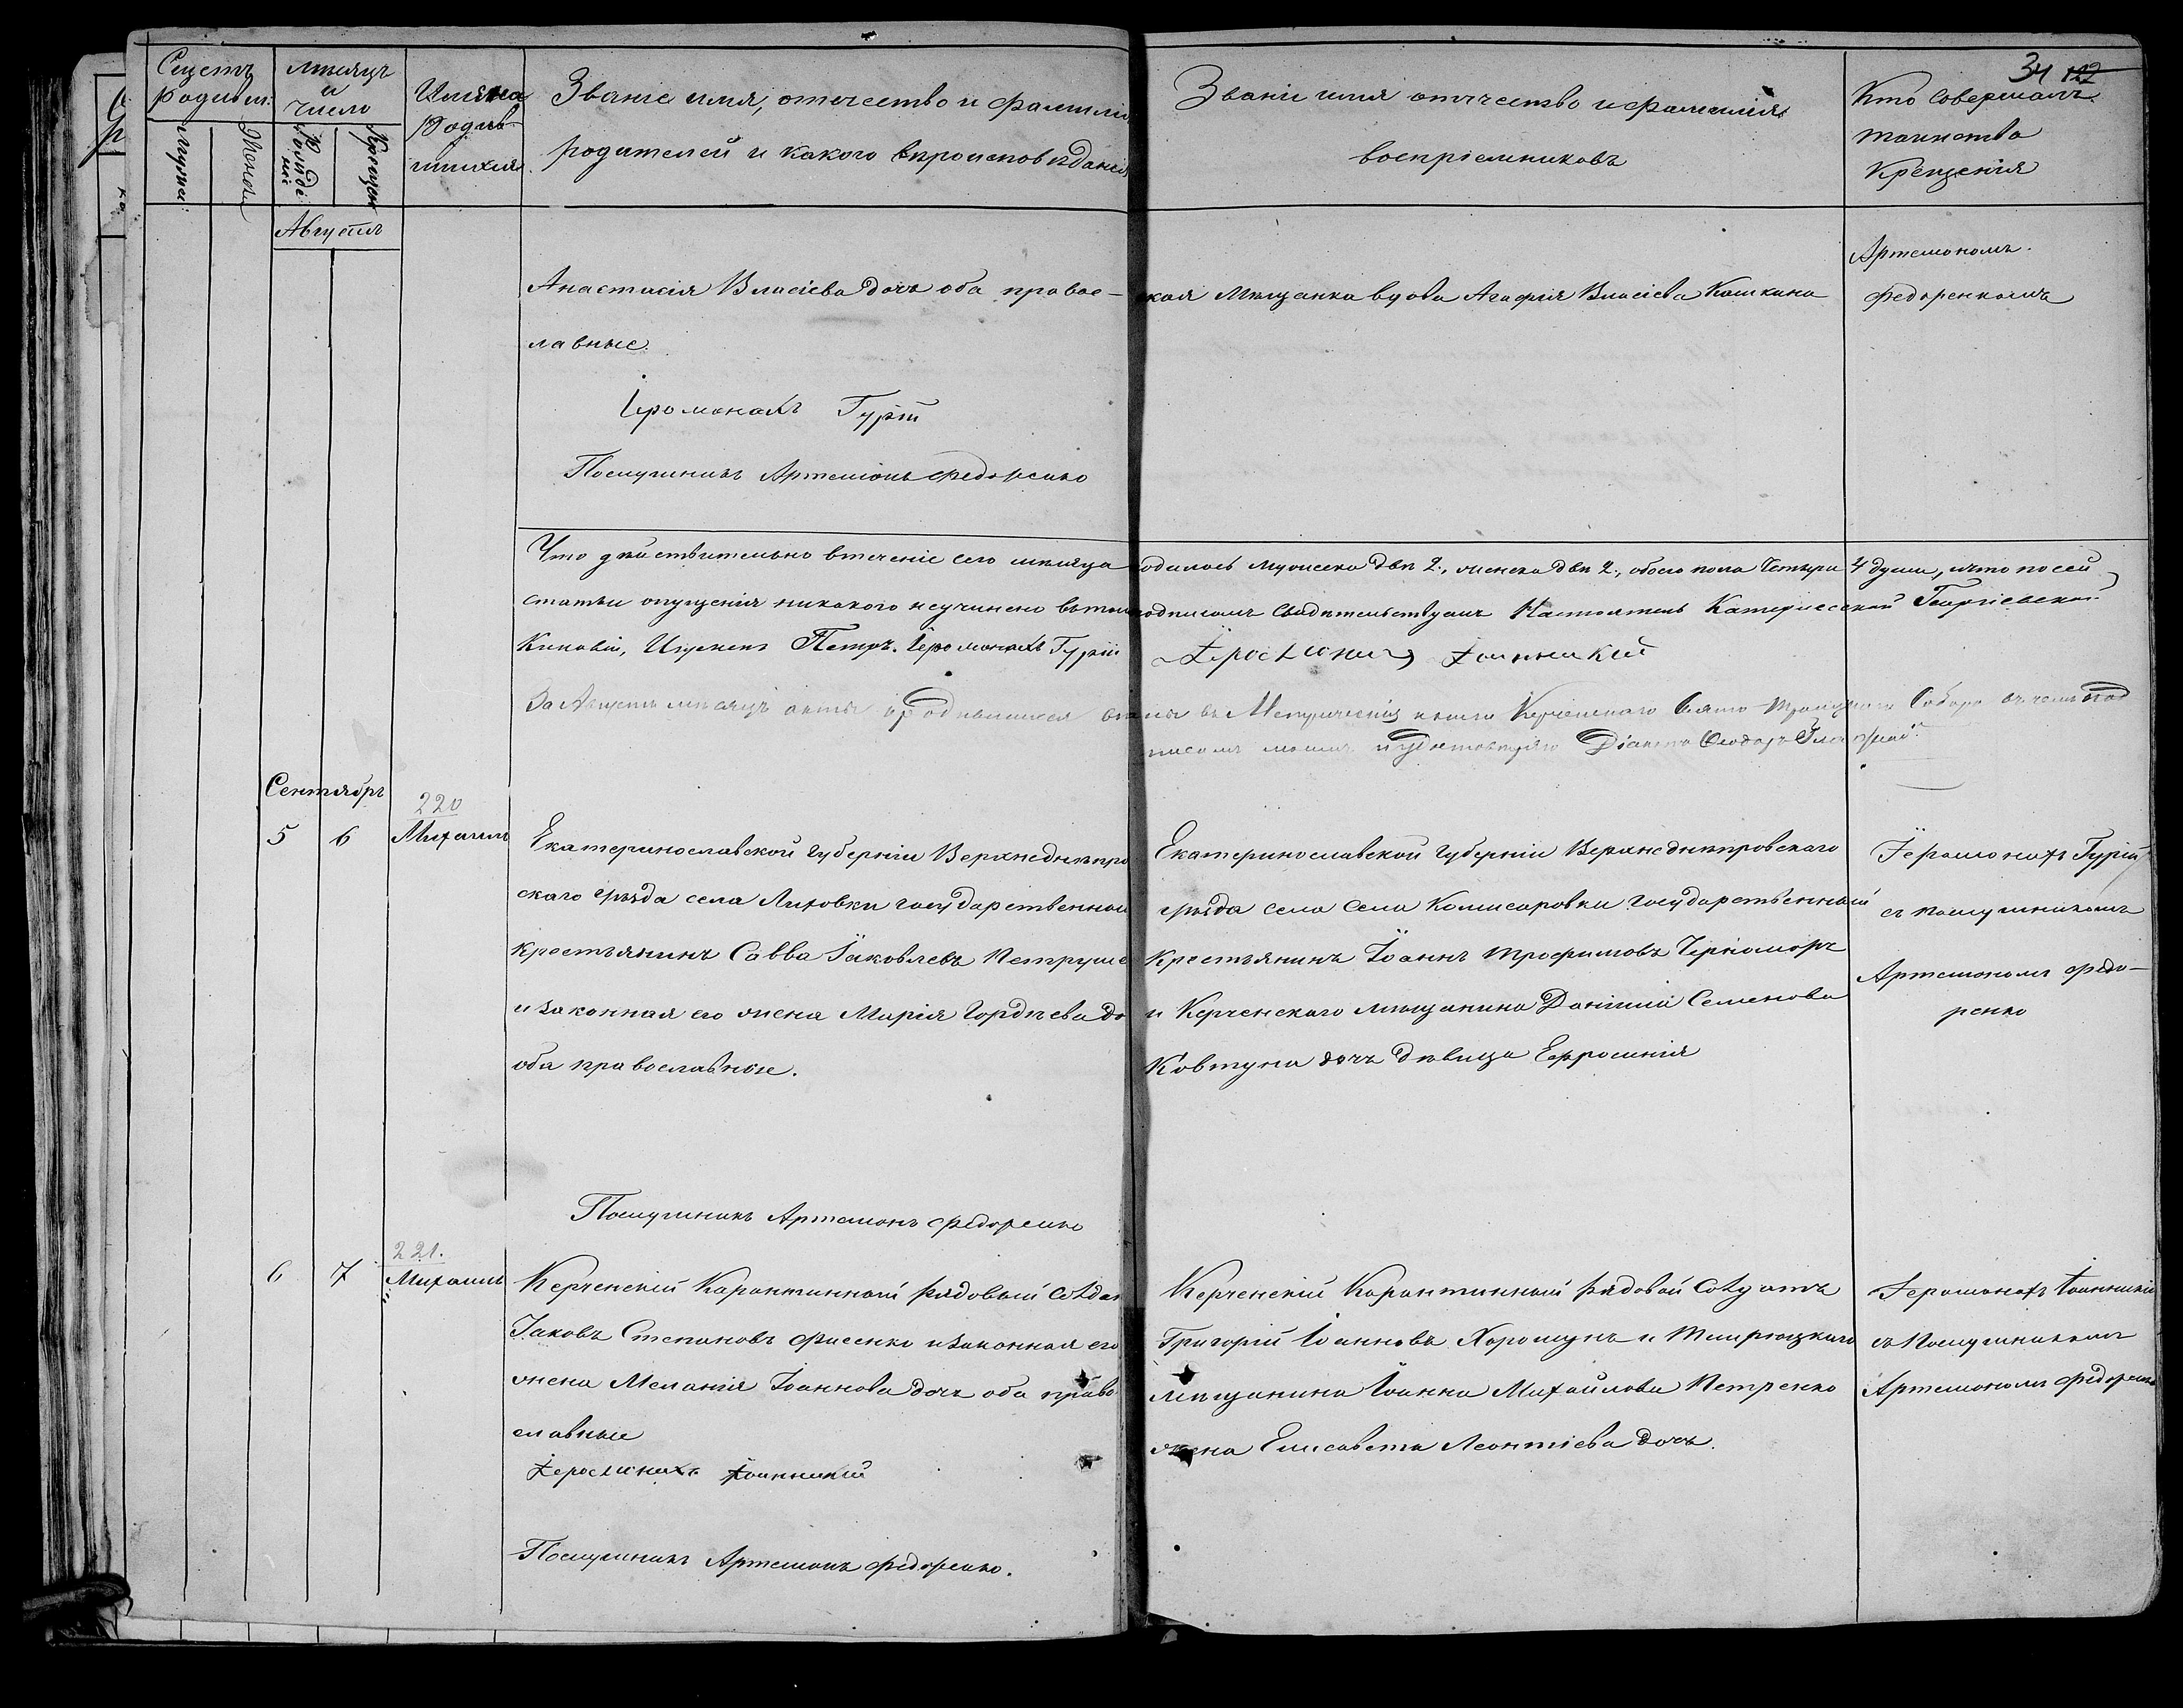 34 122
Счетъ родивш:
Мужес:
Женск
мѣсяцъ и число
Рожденіе
Крещен
Имяна Родив-шихся.
Званіе имя, отечество и фамилія
родителей и какого вѣроисповѣданія
Званіе имя отечество и фамилія
воспріемниковъ
Кто совершалъ
таинство
Крещенія
Августъ
Анастасія Власіева дочь оба правос-
лавные.
Іеромонахъ Гурій
Послушникъ Артемонъ Федоренко
ская Мѣщанка вдова Агафія Власіева Кошкина
Артемономъ
Федоренкомъ
Что дѣйствительно втеченіе сего мѣсяца родилось мужеска двѣ 2., женска двѣ 2., обоего пола Четыри 4 души, ичто посей
статьи опущенія никакого неучинено въ томъ подписомъ Свидѣтельствуемъ Настоятель Катерлесской Георгіевской
Киновіи, Игуменъ Петръ. Іеромонахъ Гурій Іеромонахъ Іоанникій
За Августъ мѣсяцъ акты о родившихся въ Метрическія книги Керченскаго Свято-Троицкаго Собора въ чемъ под
писомъ моимъ и удостовѣряю Діаконъ Ѳеодоръ
Сентябрь
220
5 6 Михаилъ
Екатеринославской губерніи Верхнеднѣпро
скаго уѣзда села Лиховки государственной
крестьянинъ Савва Іаковлевъ Петруше
и законная его жена Марія Гордѣева до
оба православные.
Послушникъ Артемонъ Федоренко
Екатеринославской губерніи Верхнеднѣпровскаго
уѣзда села Села Комисаровки государственный
Крестьянинъ Іоаннъ Трофимовъ Черноморъ
и Керченскаго мѣщанина Даніила Семенова
Ковтуна дочь дѣвица Ефросинія
Іеромонахъ Гурій
съ послушникомъ
Артемономъ Федо-
ренко
221.
6 7 Михаилъ
Керченскій Карантинный рядовый Солдат
Іаковъ Степановъ Фисенко изаконная его
жена Меланія Іоаннова дочь оба право
славные
Іеромонахъ Іоанникій
Послушникъ Артемонъ Федоренко.
Керченскій Карантинный рядовой Солдатъ
Григорій Іоанновъ Хорошунъ и Темрюцкаго
мѣщанина Іоанна Михайлова Петренко
жена Елисавета Леонтіева дочь.
Іеромонахъ Іоанникій
съ Послушникомъ
Артемономъ Федоренко